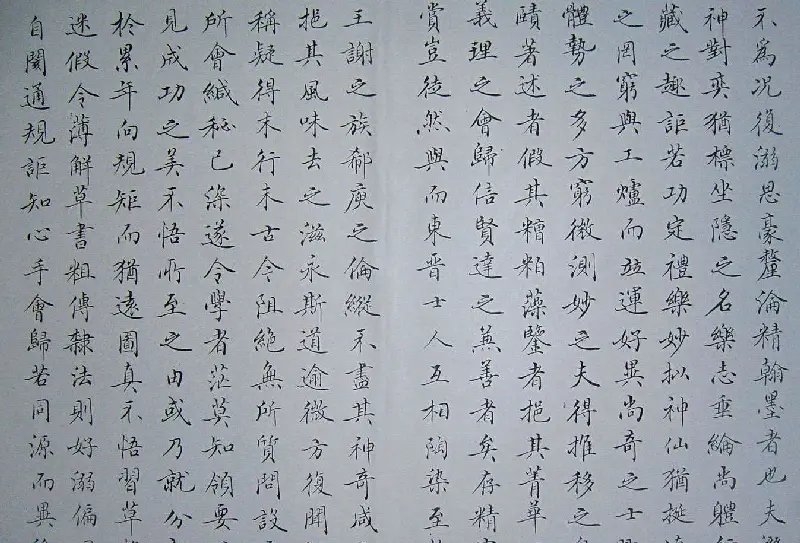 不為況復溺思豪釐淪精翰墨者也夫
神對奕猶標坐隱之名樂志垂綸尚體行
藏之趣詎若功定禮樂妙拟神仙猶挻
之罔窮與工爐而竝運好異尚奇之士
體勢之多方窮微測妙之夫得推移之
賾著述者假其糟粕藻鑒者挹其菁華
義理之會歸信賢達之兼善者矣存精
賞豈徒然與而東晉士人互相陶染至
王謝之族郗庾之倫縱不盡其神奇咸
挹其風味去之滋永斯道逾微方復聞
稱疑得末行末古今阻絕無所質問設
所會緘秘已深遂令學者茫莫知領要
見成功之美不悟所至之由或乃就分
於累年向規矩而猶遠圖真不悟習草
迷假令薄解草書粗傳隸法則好溺偏
自閡通規詎知心手會歸若同源而異